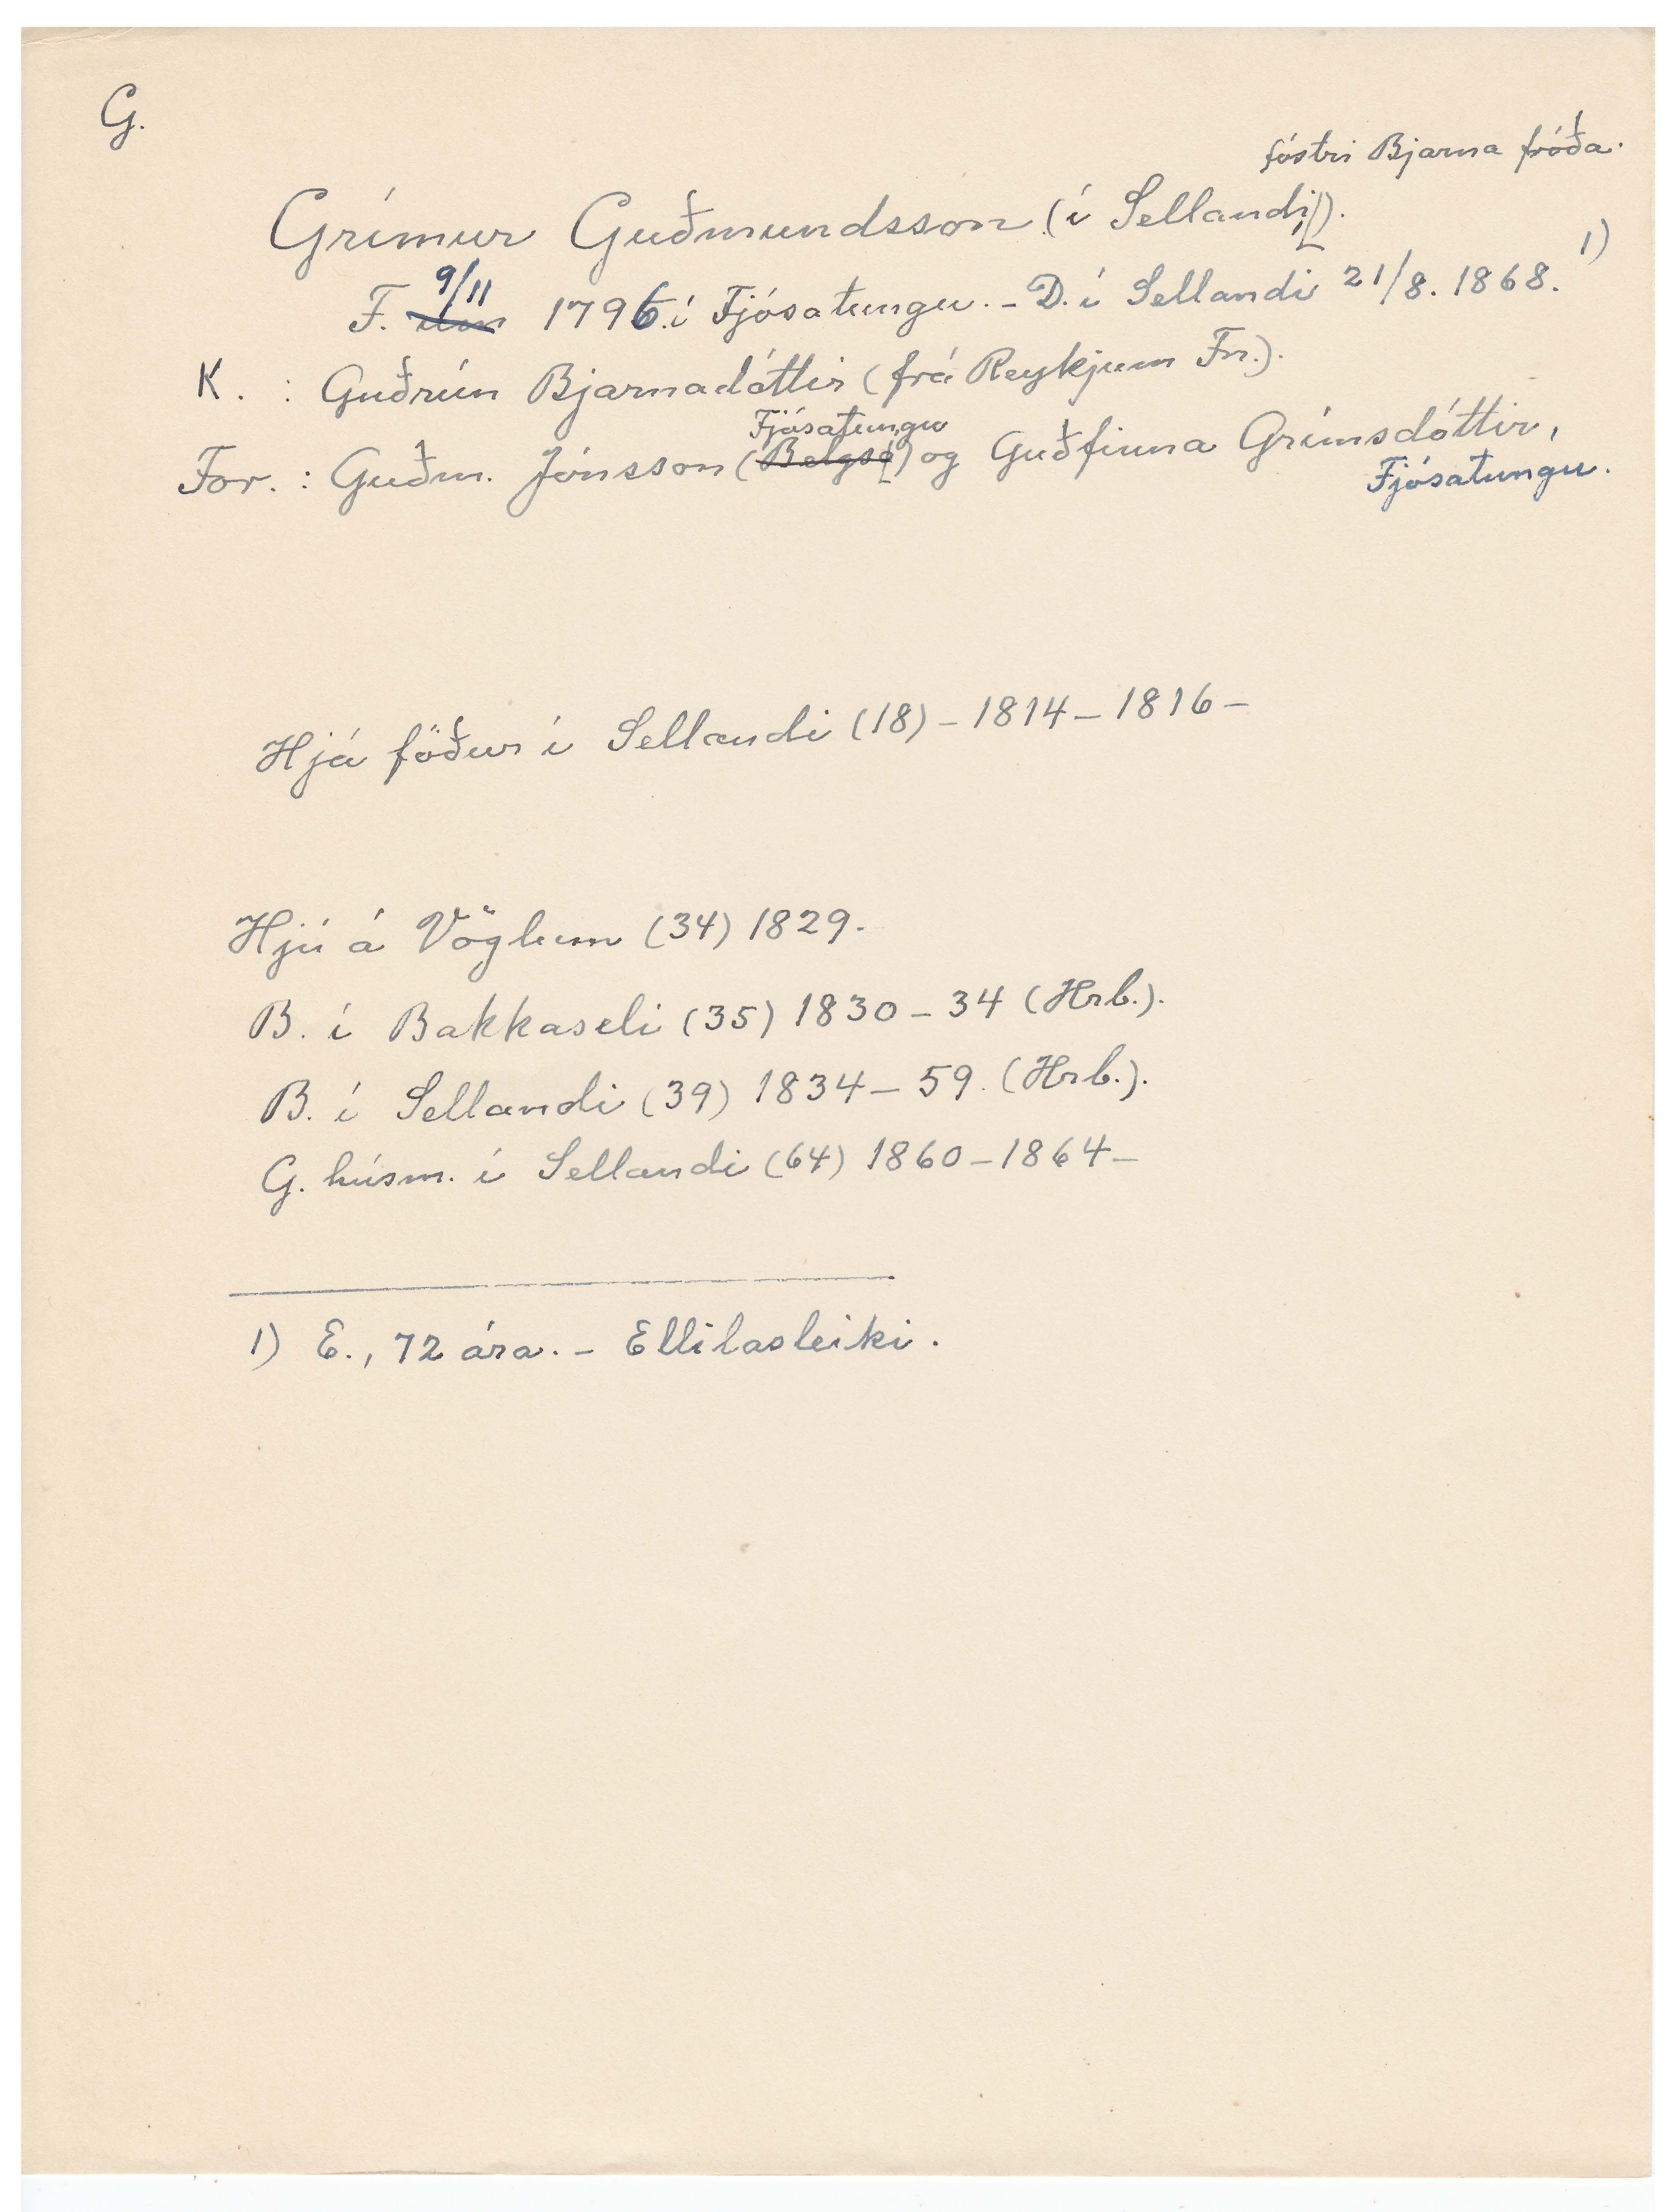 G.
fóstri Bjarna fróða.
Grímur Guðmundsson (í Sellandi).
9/11
F. um 1796 í Fjósatungu. - D. í Sellandi 21/8. 1868. 1)
K. : Guðrún Bjarnadóttir (frá Reykjum Fn.).
Fjósatungu
For. : Guðm. Jónsson (Belgsá) og Guðfinna Grímsdóttir,
Fjósatungu.
Hjá föður í Sellandi (18) - 1814 - 1816 -
Hjú á Vöglum (34) 1829.
B. í Bakkaseli (35) 1830 - 34 (Hrb.).
B. í Sellandi (39) 1834 - 59. (Hrb.).
G. húsm. í Sellandi (64) 1860 - 1864 -
1) E., 72 ára. - Ellilasleiki.